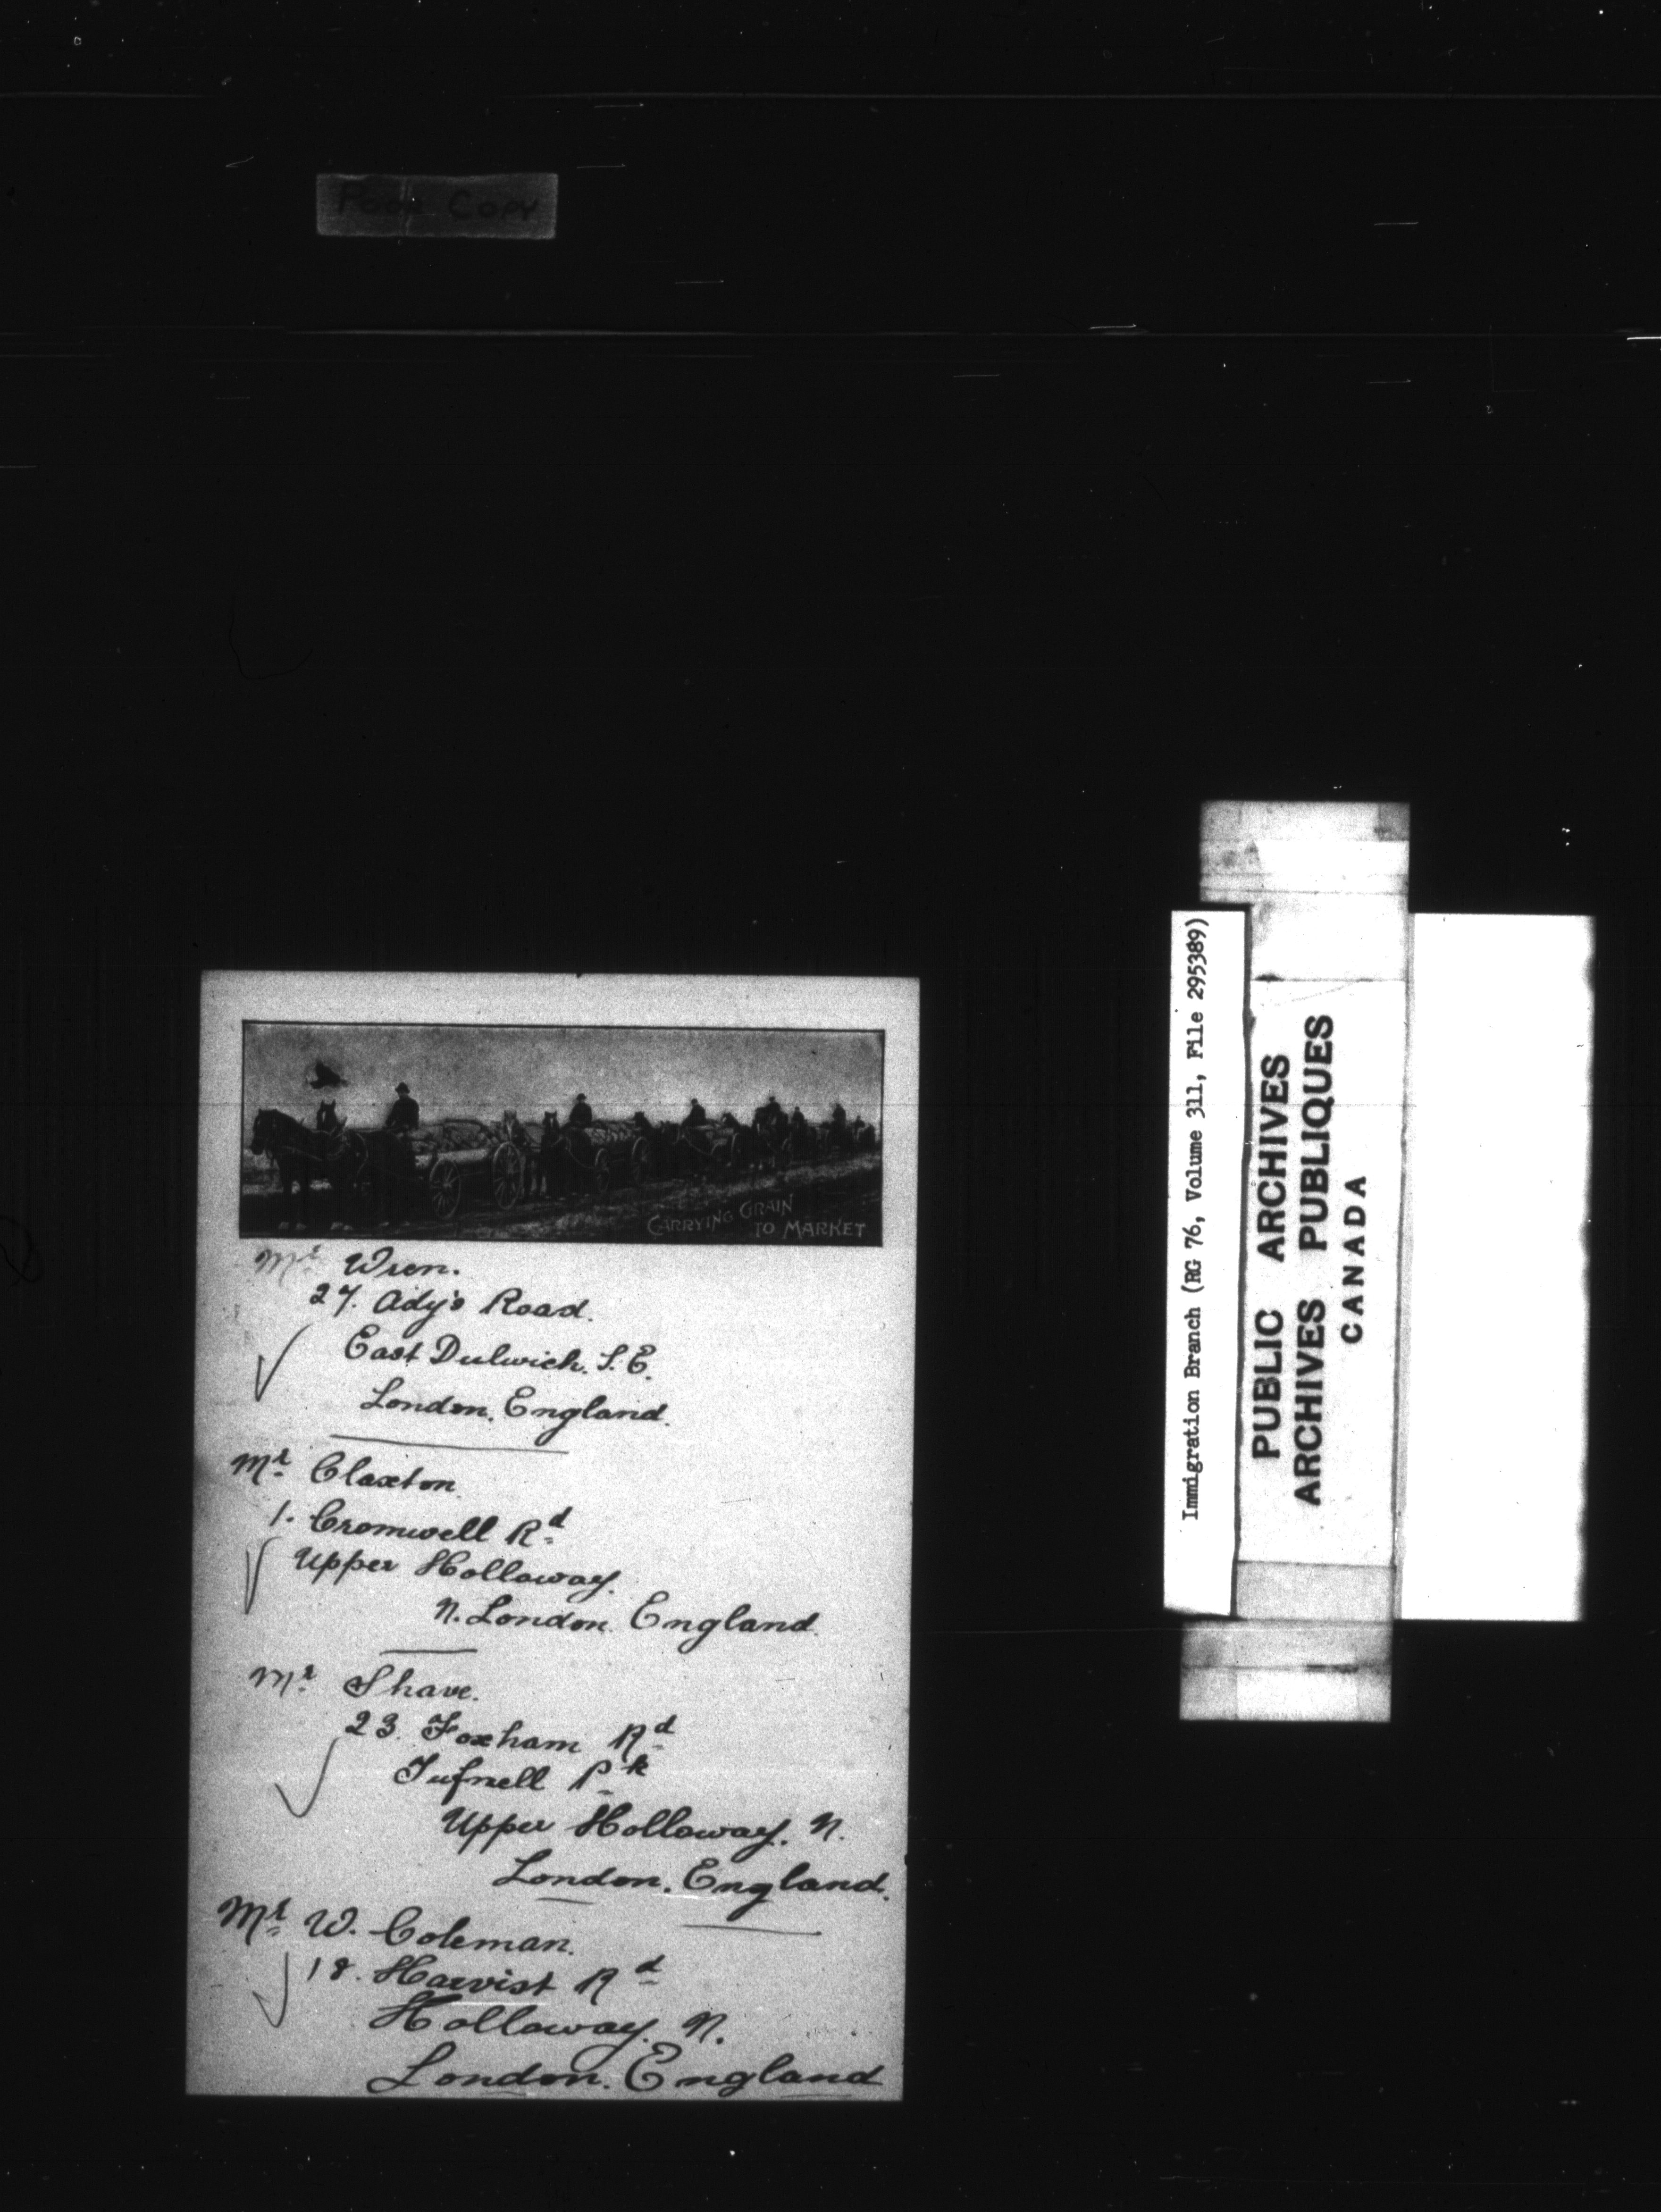 Poor Copy
CARRYING GRAIN
TO MARKET
Mr Wren.
27. Ady's Road.
East Dulwich. S. E.
London. England.
Mr Claxton
1. Cromwell Rd
Upper Holloway.
N. London. England.
Mr Shave.
23. Foxham Rd
Tufnell Pk
Upper Holloway. N.
London. England.
Mr W. Coleman.
18. Harvist Rd
Holloway. N.
London. England
Immigration Branch (RG 76, Volume 311, File 295389)
PUBLIC ARCHIVES
ARCHIVES PUBLIQUES
CANADA